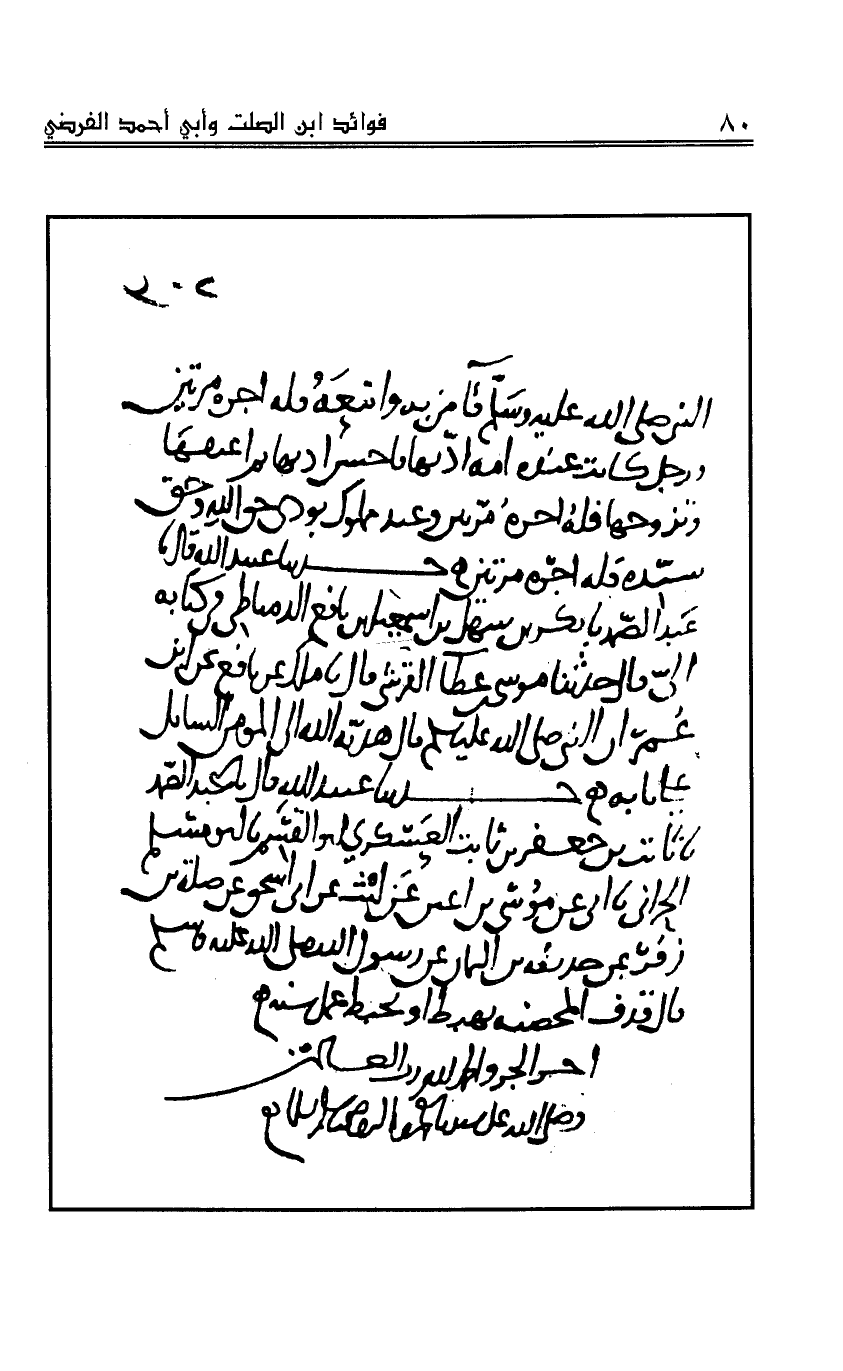 ٨٠
فوائد ابن الصلت وأبي أحمد الفرضي
النبي صلى الله عليه وسلم فآمن به واتبعه فله اجره مرتين
ورجل كانت عنده امة ادبها فاحسن ادبها ثم اعتقها
وتزوجها فله اجره مرتين وعبد مملوك يودي حق الله وحق
سيده فله اجره مرتين حدثنا عبيد الله قال
عبد الصمد نا بكر بن سهل بن اسمعيل بن نافع الدمياطي في كتابه
الي قال حدثنا موسى بن عطا القرشي قال نا ملك عن نافع عن ابن
عمر ان النبي صلى الله عليه وسلم قال هدية الله الى المومن السايل
على بابه حدثنا عبيد الله قال نا عبد الصمد
نا ثابت بن جعفر بن ثابت العسكري ابو القشم نا
الحراني نا ابي عن موسى بن اعين عن ليث عن ابي اسحق عن صلة بن
زفر عن حذيفة بن اليمان عن رسول الله صلى الله عليه وسلم
قال قذف المحصنه يهدم او يحبط عمل سنه
اخر الجزو والحمد لله رب العالمين
وصلى الله على سيدنا محمد واله